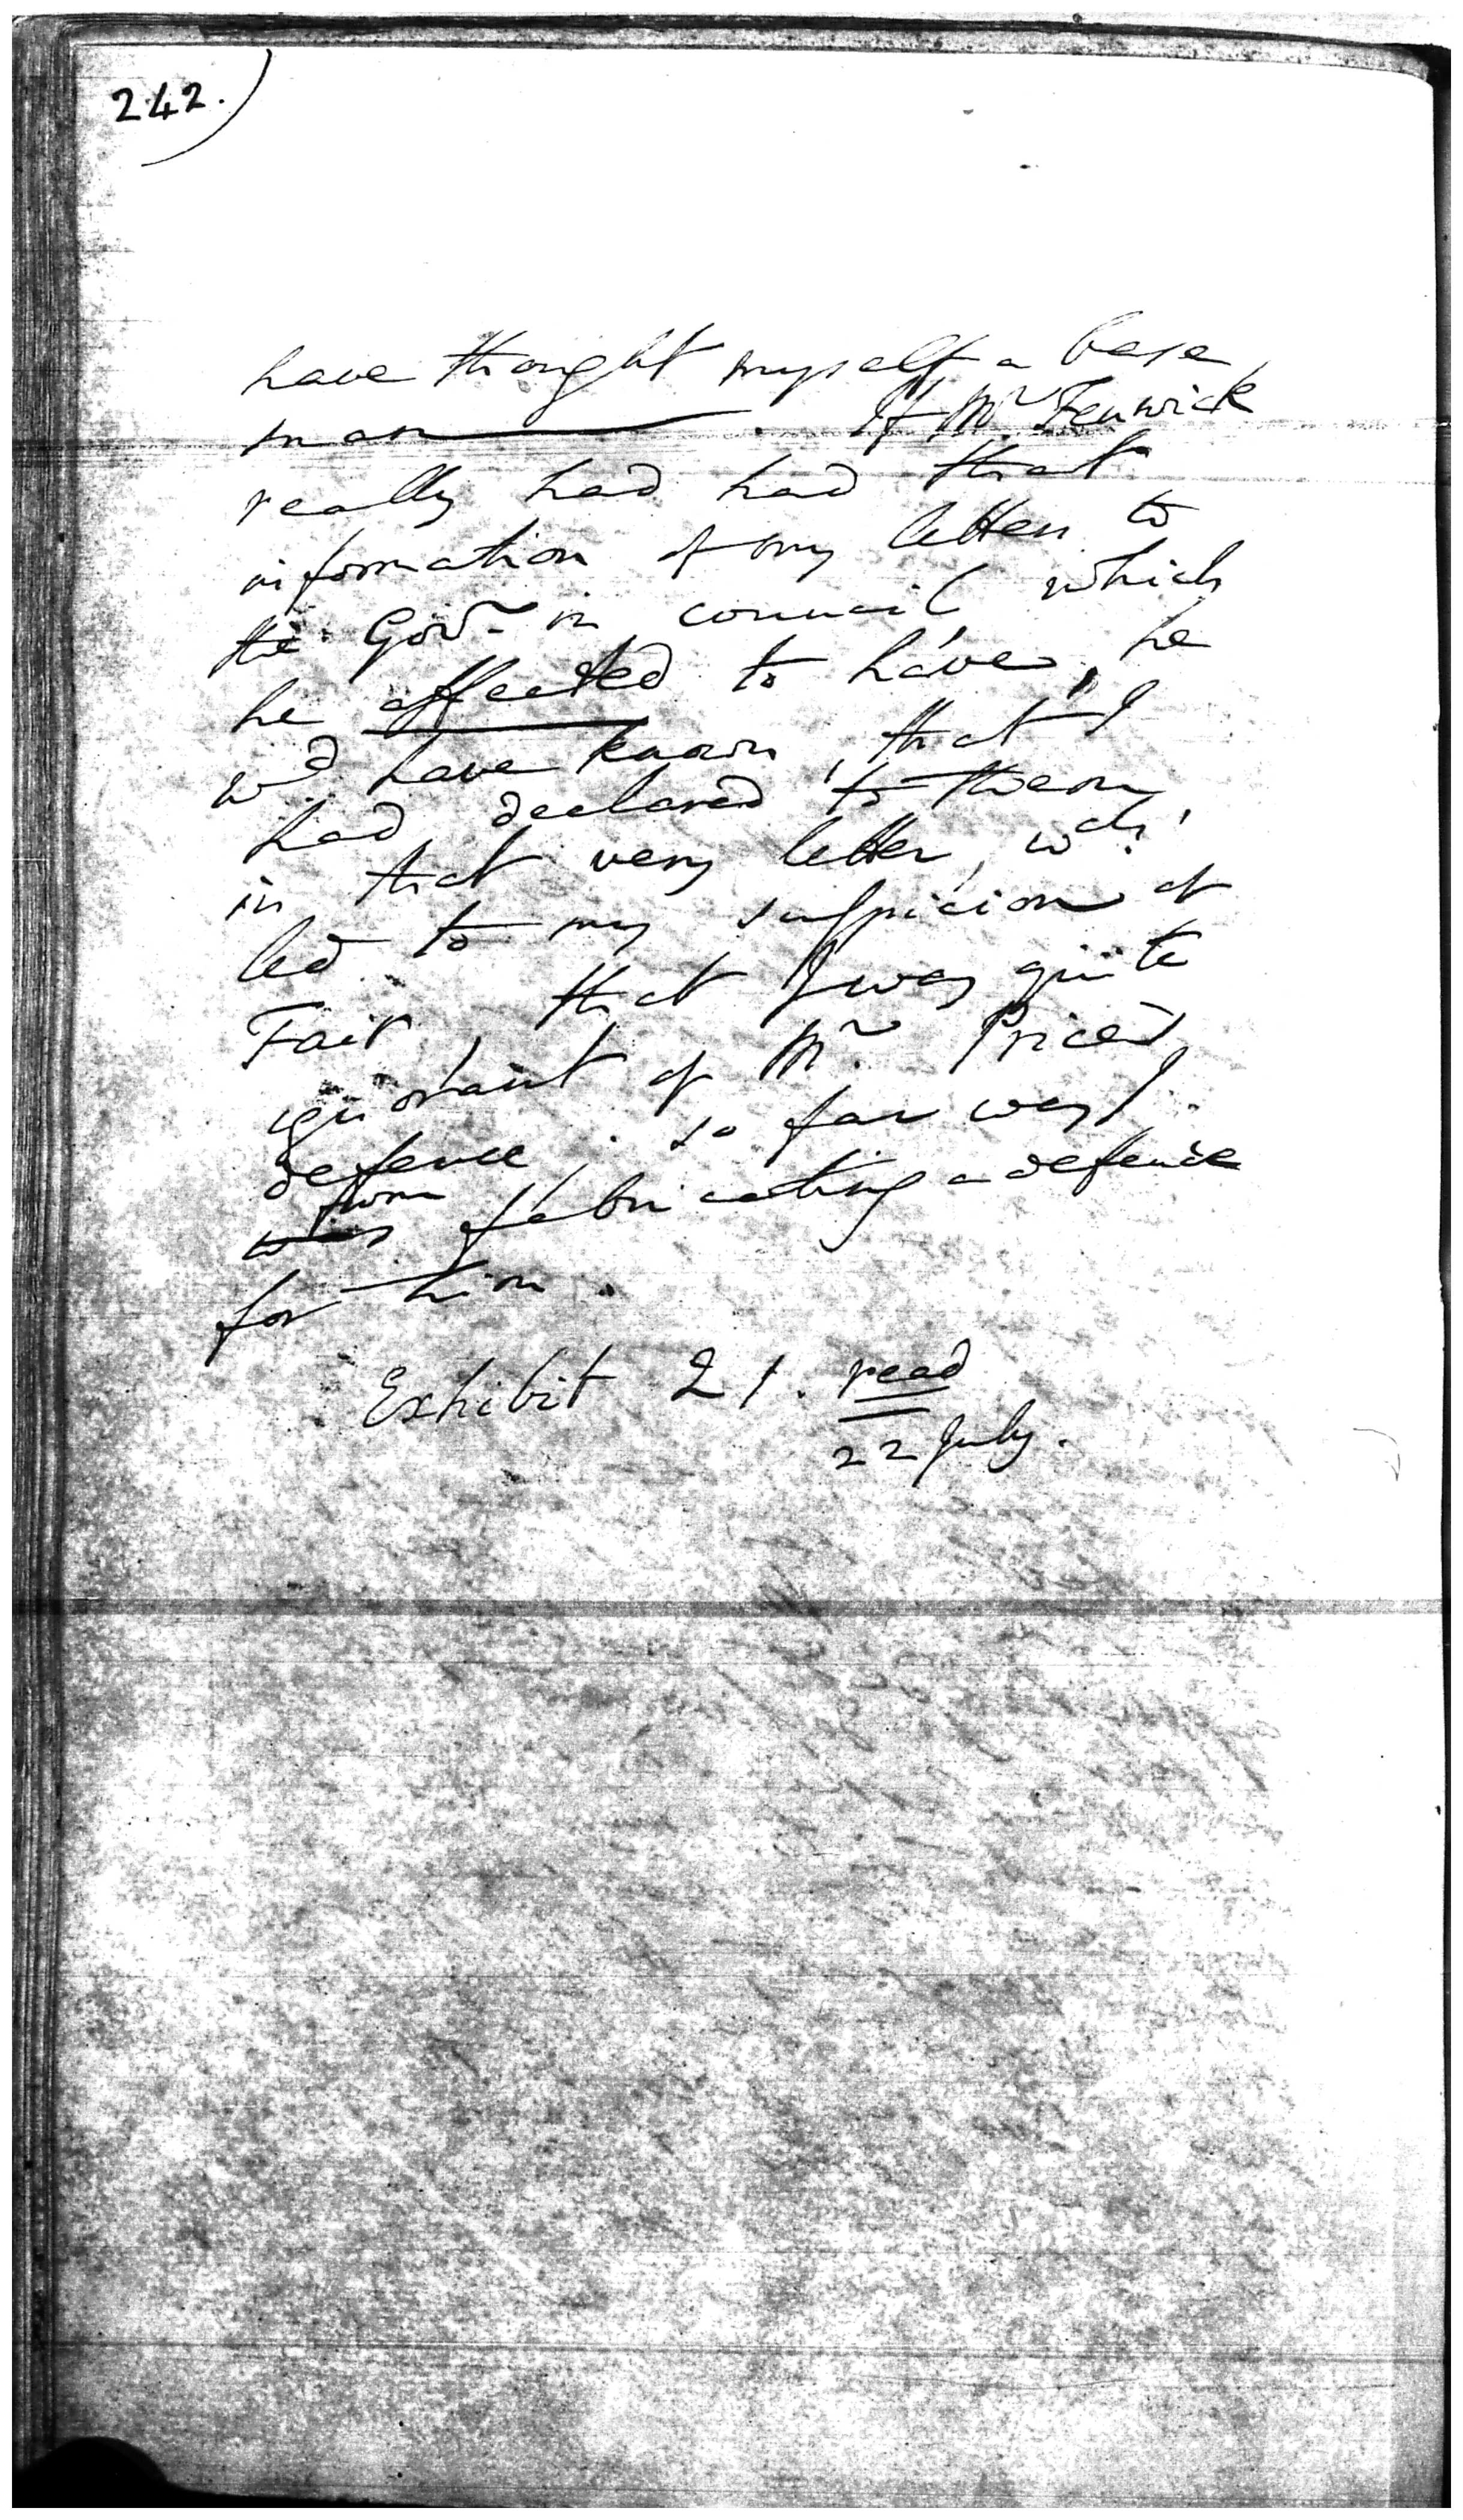 242.)
have thought myself a base
man ——— . If Mr. Fenwick
really had had that
information of my letter to
the Govr. in council, which
he affected to have, he
wd. have known, that I
had declared to them
in that very letter, wch.
led to my suspicion of
Tait, that I was quite
ignorant of Mr. Price's
defence; so far was I
from
was fabricating a defence
for him.
Exhibit 21. read
22 July.